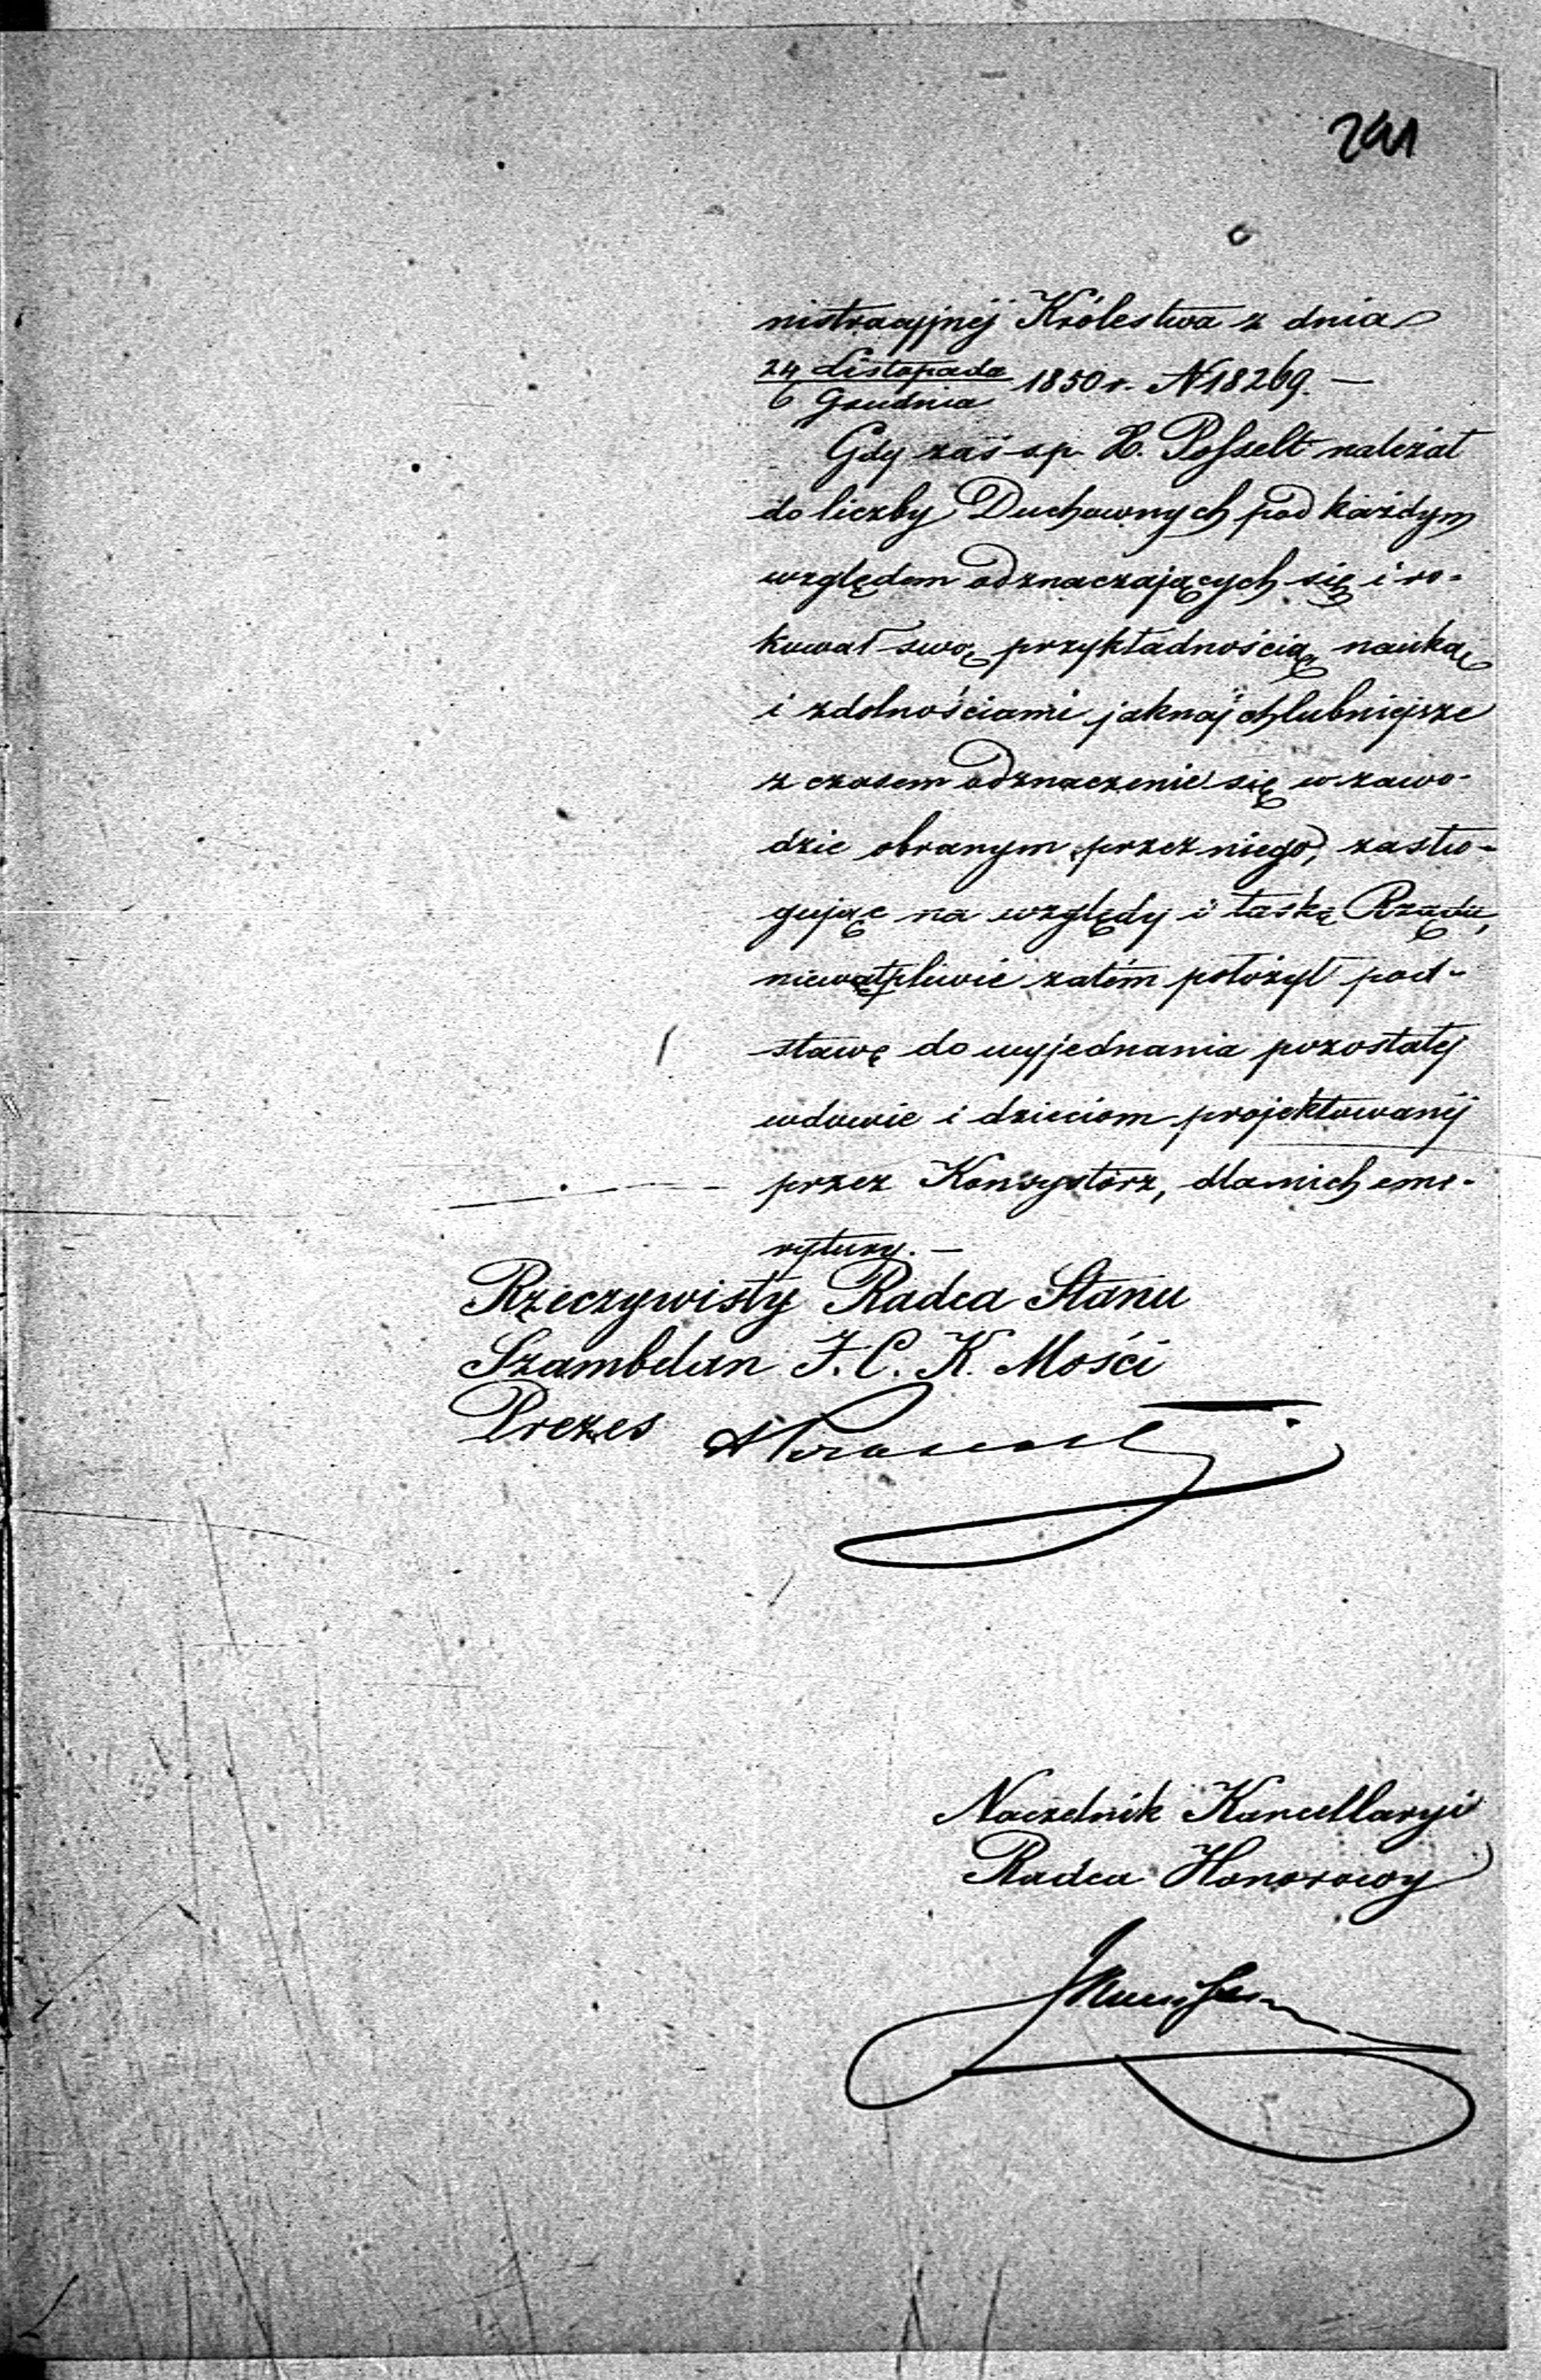 241
nistracyjnéj Królestwa z dnia
24 Listopada
6 Grudnia 1850 r. N 18269. —
Gdy zaś ś.p. X. Posselt należał
do liczby Duchownych pod każdym
względem odznaczających się i ro-
kował swą przykładnością, nauką
i zdolnościami jaknajchlubniejsze
z czasem odznaczenie się w zawo-
dzie obranym przez niego, zasłu-
gując na względy i łaskę Rządu,
niewątpliwie zatém położył pod-
stawę do wyjednania pozostałej
wdowie i dzieciom projektowanéj
przez Konsystórz, dla nich eme-
rytury. —
Rzeczywisty Radca Stanu
Szambelan J. C. K. Mości
Prezes
Naczelnik Kancellaryi
Radca Honorowy